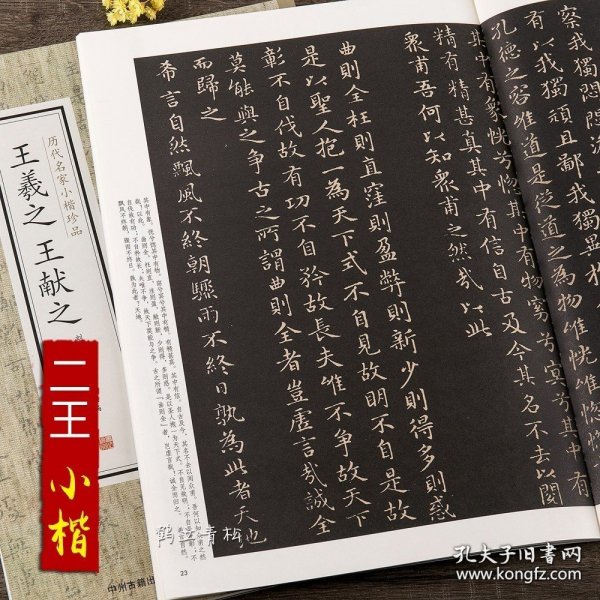 察我獨悶悶
有以我獨頑且鄙我獨異
孔德之容惟道是從道之為物惟恍惟惚
其中有象恍兮惚兮其中有物窈兮冥兮其中有
精有精甚真其中有信自古及今其名不去以閱
衆甫吾何以知衆甫之然哉以此
曲則全枉則直窪則盈弊則新少則得多則惑
是以聖人抱一為天下式不自見故明不自是故
彰不自伐故有功不自矜故長夫惟不争故天下
莫能與之争古之所謂曲則全者豈虛言哉誠全
而歸之
希言自然飄風不終朝驟雨不終日孰為此者天地
23
历代名家小楷珍品
王羲之 王献之
二王
小楷
中州古籍出
鹤立青松
孔夫子旧书网
www.kongfz.com